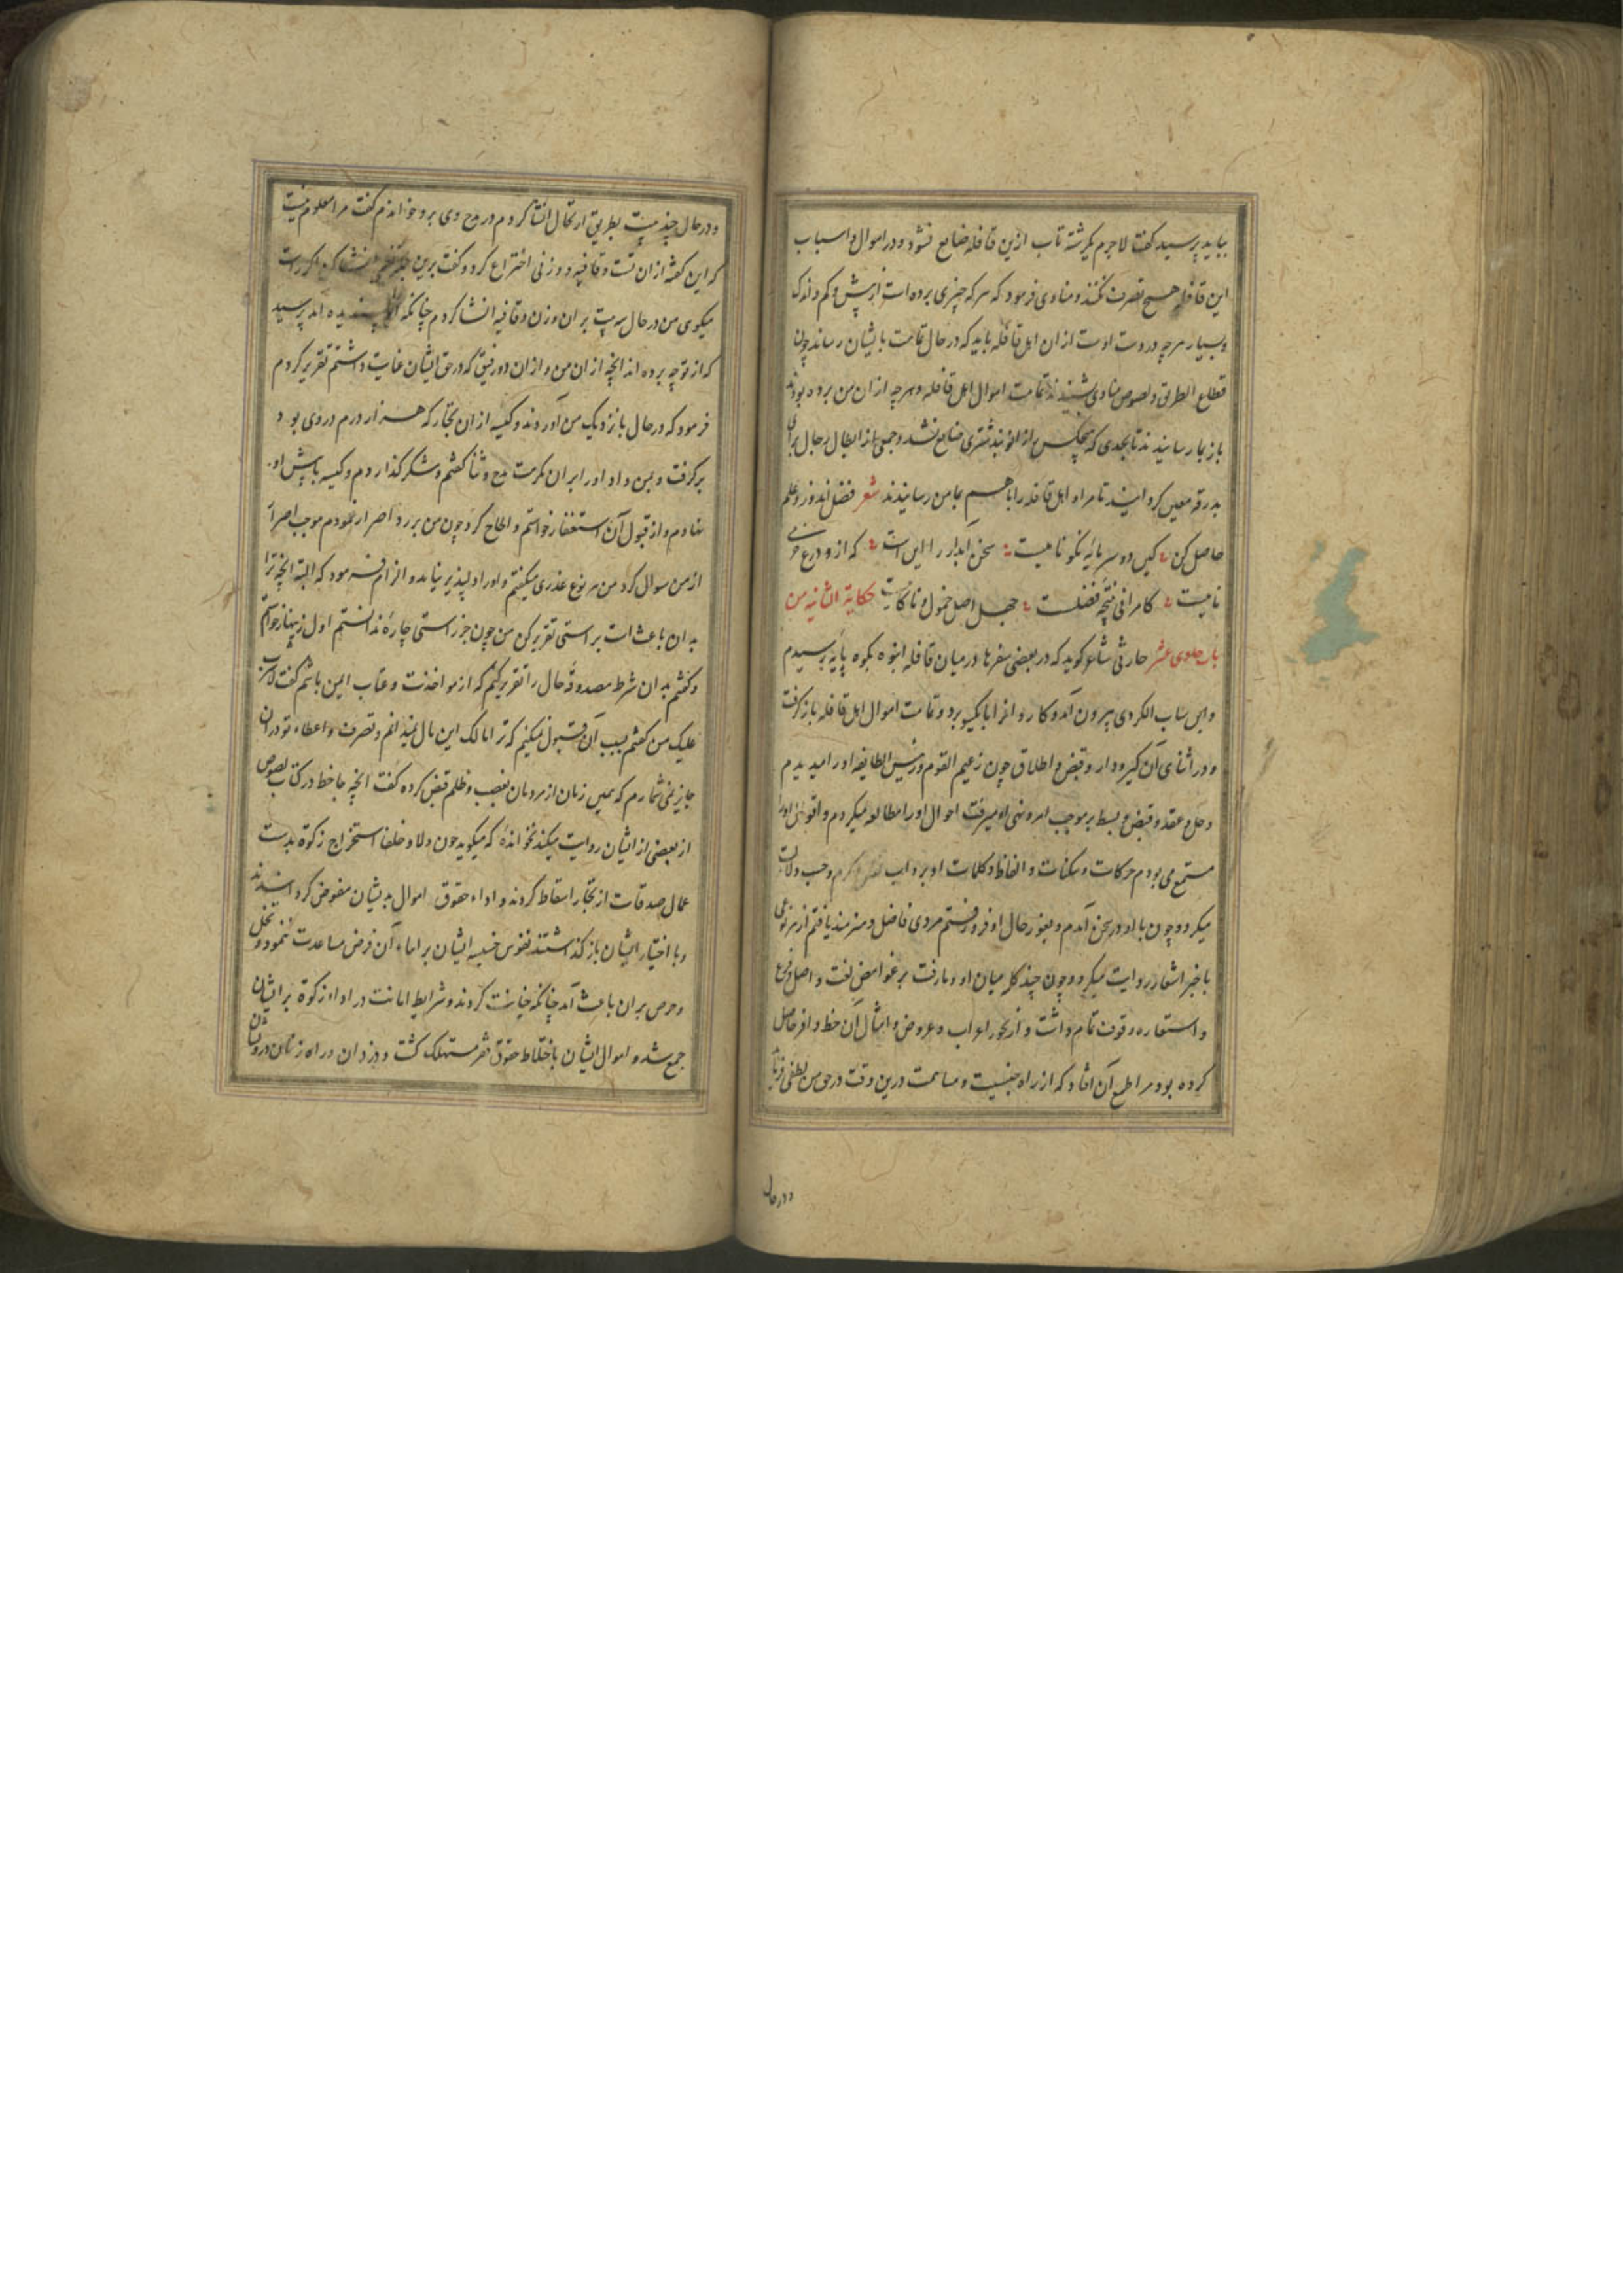 بباید پرسید گفت لاجرم یکرشته تاب ازین قافله ضایع نشود و در اموال و اسباب
این قافله هیچ تصرف نکنند و منادی فرمود که هرکه چیزی برده است از بیش و کم و اندک
و بسیار هرچه در دست اوست از ان اهل قافله باید که در حال تمامت بایشان رساند چون
قطاع الطریق و لصوص منادی شنیدند تمامت اموال اهل قافله و هرچه از ان من برده بودند
باز بما رسانیدند تا بحدی که هیچکس را زانوبند شتری ضایع نشد و جمعی از ابطال رجال برای
بدرقه معین گردانید تا مرا و اهل قافله را باهم بمامن رسانیدند شعر فضل اندوز و علم
حاصل کن کین دو سرمایه نکو نامیست سخن آبدار را این است که ازو درع
نامیست کامرانی نتیجه فضلست جهل اصل خمول و ناکامیست حکایة الثانیه من
باب حادی عشر حارثی شاعر کوید که در بعضی سفرها در میان قافله انبوه بکوه پایه برسیدم
و ابن سباب الکردی بیرون آمد و کاروانرا بایکسو برد و تمامت اموال اهل قافله باز گرفت
و در اثنای آن گیرودار و قبض و اطلاق چون زعیم القوم و رئیس الطایفه اورا میدیدم
و حل و عقد و قبض و بسط بر موجب امر و نهی او میرفت احوال اورا مطالعه میکردم و اقوال اورا
مستمع می بودم حرکات و سکنات و الفاظ و کلمات او بر داب
میکرد و چون با او در سخن آمدم و بغور حال او فرو رفتم مردی فاضل و هنرمند یافتم از هر نوعی
با خبر اشعار روایت میکرد و چون چند کلمه میان او و ما رفت بر غوامض لغت و اصل و فرع
و استعاره وقوف تمام داشت و از نحو و اعراب و عروض و امثال آن حظ وافر حاصل
کرده بود مرا طمع آن افتاد که از راه جنسیت و مساهمت درین وقت در حق من لطفی فرماید
و در حال
و در حال چند بیت بطریق ارتجال انشا کردم در مدح وی برو خواندم گفت مرا معلوم نیست
که این گفته از ان تست و قافیه و وزنی اختراع کرد و گفت برین انشا کن اگر راست
میکوی من در حال سه بیت بر ان وزن و قافیه انشا کردم چنانکه پسندیده آمد پرسید
که از تو چه برده اند انچه از ان من و از ان دو رفیق که در حق ایشان عنایت داشتم تقریر کردم
فرمود که در حال باز نزدیک من آوردند و کیسه از ان تجار که هزار درم در وی بود
برگرفت و بمن داد اورا بران مکرمت مدح و ثنا گفتم و شکر گذاردم و کیسه با پیش او
نهادم و از قبول آن استعفا خواستم و الحاح کرد چون من بر رد اصرار نمودم موجب اصرار
از من سوال کرد من هر نوع عذری میگفتم و اورا دلپذیر نیامد و الزام فرمود که البته انچه ترا
بدان باعث است براستی تقریر کن من چون جز راستی چاره ندانستم اول زینهار خواستم
و گفتم بدان شرط مصدوقه حال را تقریر کنم که از مواخذت و عتاب ایمن باشم گفت
علیک من گفتم بسبب آن قبول نمیکنم که ترا مالک این مال نمیدانم و تصرف و اعطاء تو در ان
جایز نمی شمارم که همین زمان از مردمان بغصب و ظلم قبض کرده گفت انچه جاحظ در کتاب لصوص
از بعضی از ایشان روایت میکند نخوانده که میکوید چون ولاة و خلفا استخراج زکوة بدست
عمال صدقات از تجار اسقاط کردند و اداء حقوق اموال بدیشان مفوض گردانیدند
و با اختیار ایشان باز گذاشتند نفوس خسیسه ایشان بر اداء آن فرض مساعدت ننمود و بخل
و حرص بران باعث آمد چنانکه خیانت کردند و شرایط امانت در اداء زکوة بر ایشان
جمع شد و اموال ایشان باختلاط حقوق فقرا مستهلک گشت و دزدان و راه زنان درویشان